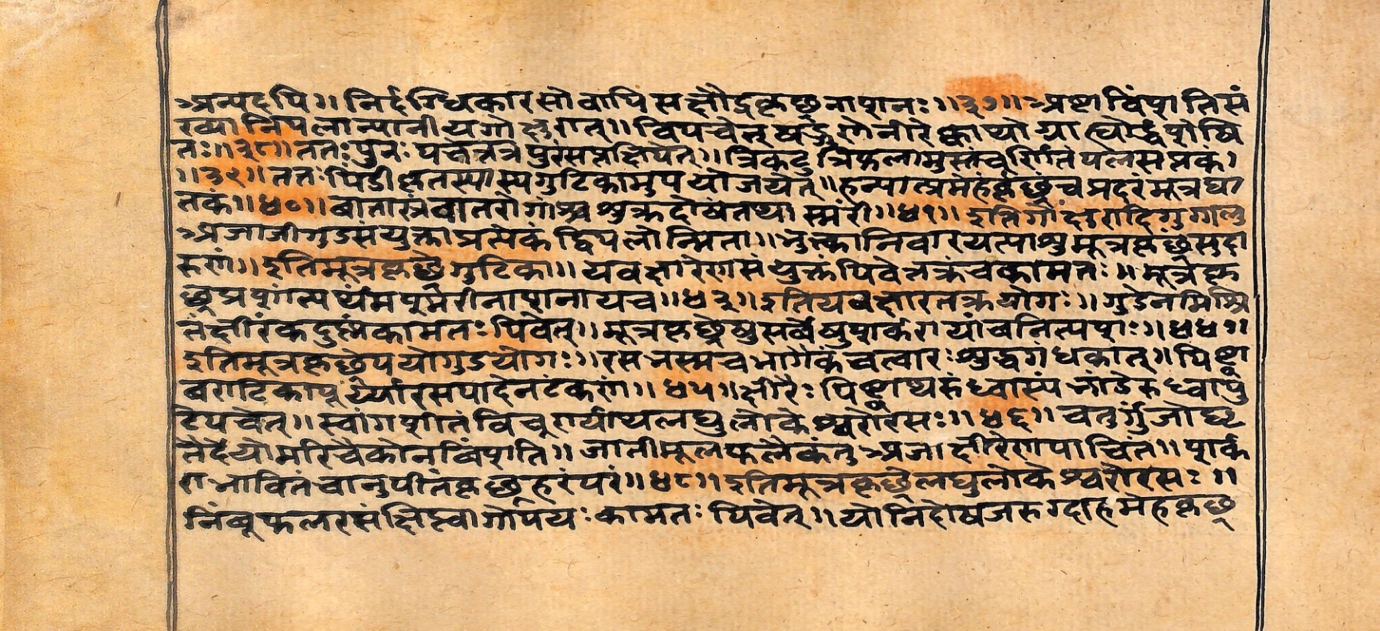 अन्यदपि॥ निर्दग्धिकारसो वापि सक्षौद्रकृछ्रनाशनः॥३७॥ अष्टाविंशतिसं
ख्यानिपलान्यानीयगोक्षुरात्॥ विपचेत् षड्गुणेनीरेक्वाथोग्राह्योर्द्धशेषि
तः॥३८॥ ततःपुनः पचेत्तत्रपुरसप्तक्षिपेत्॥ त्रिकटुत्रिफलामुस्तचूर्णितंपलसप्तकं।
॥३९॥ ततःपिंडीकृतस्यास्यगुटिकामुपयोजयेत्॥ हन्यात्प्रमेहंकृछ्रंचप्रदरंमूत्रघा
तकं॥४०॥ वातास्रंवातरोगांश्चशुक्रदोषंतथास्मरीं॥४१॥ इतिगोक्षुरादिगुग्गलु
अजाजीगुडसंयुक्ताप्रत्येकंद्विपलोन्मिता॥ भुक्तानिवारयत्याशुमूत्रकृछ्रंसुदा
रुणं॥ इतिमूत्रकृछ्रेगुटिका॥ यवक्षारेणसंयुक्तंपिबेत्तक्रंचकामतः॥ मूत्रकृ
छ्रप्रशांत्यर्थमश्मरीनाशनायच॥४३॥ इतियवक्षारतक्रयोगः॥ गुडेनमिश्रि
तंक्षीरंकदुष्णंकामतः पिबेत्॥ मूत्रकृछ्रेषुसर्वेषुशर्करायांचनित्यशः॥४४॥
इतिमूत्रकृछ्रेपयोगुडयोगः॥ रसभस्मचभागैकंचत्वारःशुद्धगंधकात्॥ पिष्ट्वा
वराटिकापूर्य्यारसपादेनटंकणं॥४५॥ क्षीरैः पिष्ट्वाथरुंध्वास्यंभांडेरुध्वापु
टेपचेत्॥ स्वांगशीतंविचूर्ण्याथलघुलोकेश्वरोरसः॥४६॥ चतुर्गुंजोघृ
तैर्देयोमरिचैकोनविंशति॥ जातीमूलफलैकंतुअजाक्षीरेणपाचितं॥ शर्क
राभावितंचानुपीतंकृछ्रहरंपरं॥४८॥ इतिमूत्रकृछ्रेलघुलोकेश्वरोरसः॥
निंबूफलरसंक्षिप्त्वागोपयः कामतः पिबेत्॥ योनिदोषजरुग्दाहमेहकृछ्र